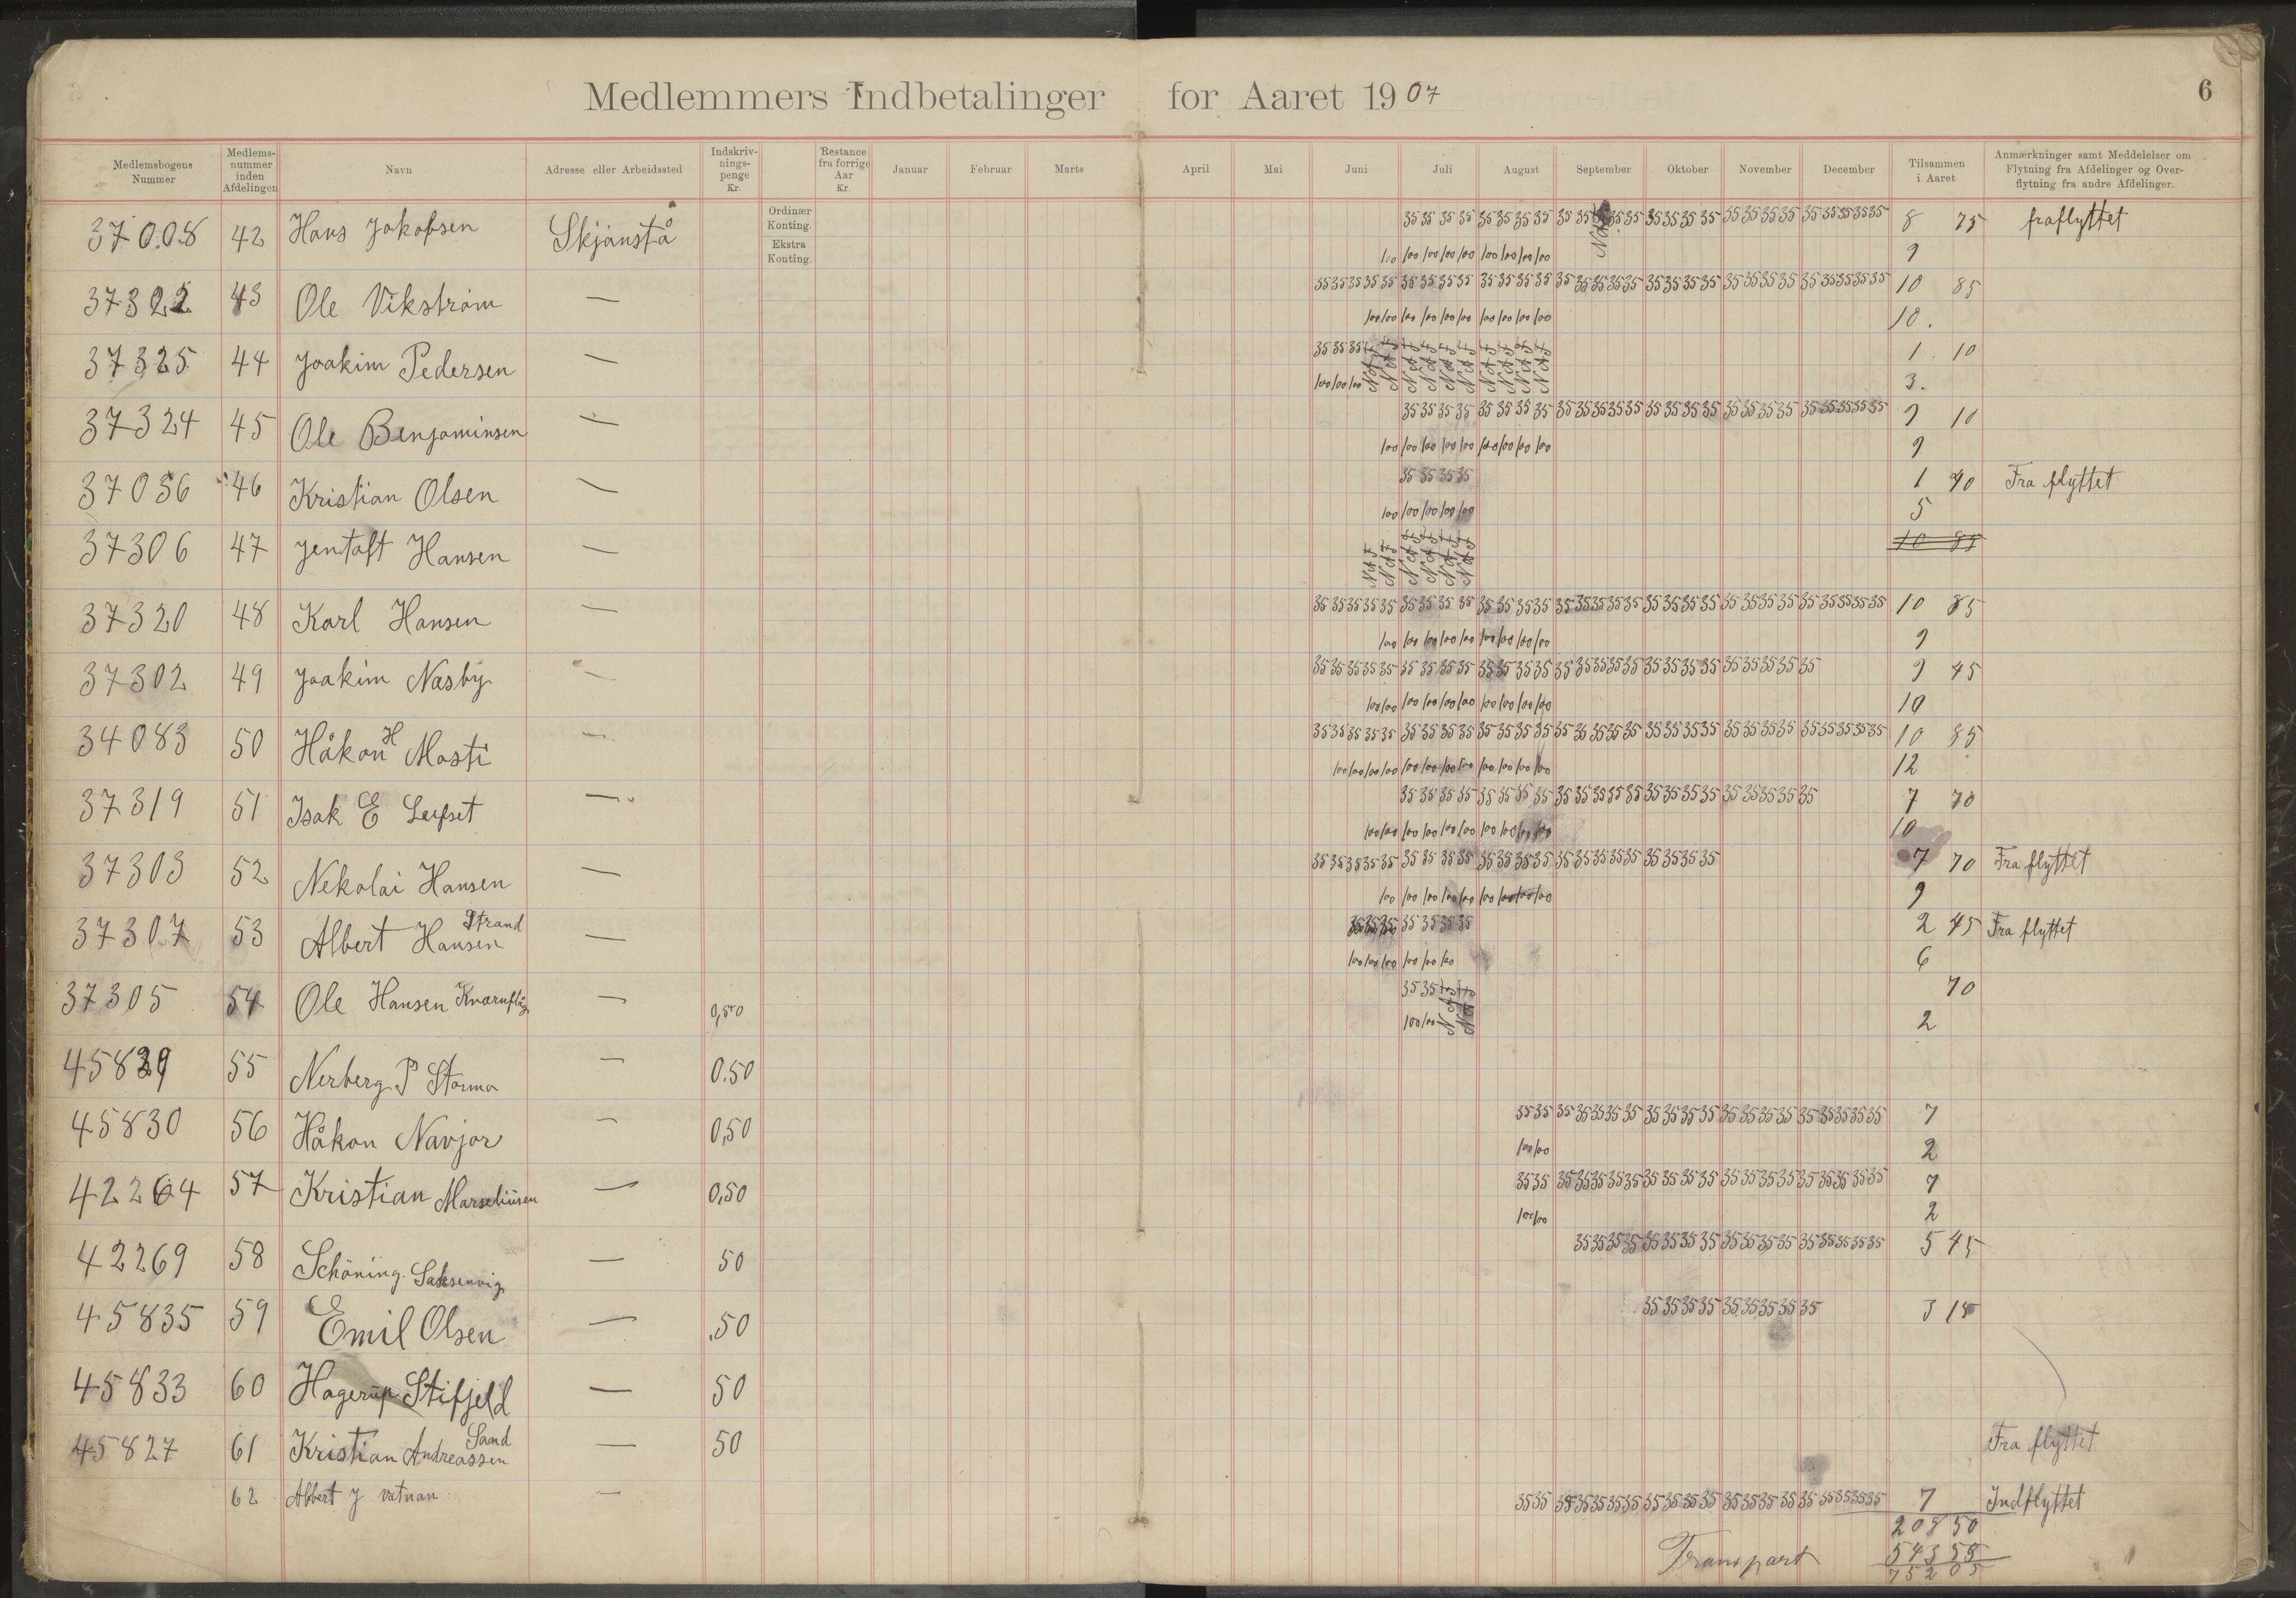 Medlemmers Indbetalinger for Aaret 1907
6
Medlemsbogens Nummer
Medlems-nummer inden Afdelingen
Navn
Adresse eller Arbeidssted
Indskriv-nings-penge Kr.
Restance fra forrige Aar Kr.
Januar Februar Marts April Mai Juni Juli August September Oktober November December
Tilsammen i Aaret
Anmærkninger samt Meddelelser om Flytning fra Afdelinger og Over-flytning fra andre Afdelinger.
Ordinær Konting.
Ekstra Konting.
37008 42 Hans Jakobsen Skjånstå 35 35 35 35 35 35 35 35 35 35 35 35 35 35 35 35 35 35 35 35 35 35 35 35 35 8 75 fraflyttet
100 100 100 100 100 100 100 100 100 9
37322 43 Ole Vikstrøm — 35 35 35 35 35 35 35 35 35 35 35 35 35 35 35 35 35 35 35 35 35 35 35 35 35 35 35 35 35 35 35 10 85
100 100 100 100 100 100 100 100 100 100 10.
37325 44 Joakim Pedersen — 35 35 35 1. 10
100 100 100 3.
37324 45 Ole Benjaminsen — 35 35 35 35 35 35 35 35 35 35 35 35 35 35 35 35 35 35 35 35 35 35 35 35 35 35 9 10
100 100 100 100 100 100 100 100 100 9
37036 46 Kristian Olsen — 35 35 35 35 1 40 Fra flyttet
100 100 100 100 100 5
37306 47 Jentoft Hansen — 10 85
37320 48 Karl Hansen — 35 35 35 35 35 35 35 35 35 35 35 35 35 35 35 35 35 35 35 35 35 35 35 35 35 35 35 35 35 35 35 10 85
100 100 100 100 100 100 100 100 100 9
37302 49 Joakim Næsby — 35 35 35 35 35 35 35 35 35 35 35 35 35 35 35 35 35 35 35 35 35 35 35 35 35 35 35 9 45
100 100 100 100 100 100 100 100 100 100 10
34083 50 Håkon H Mosti — 35 35 35 35 35 35 35 35 35 35 35 35 35 35 35 35 35 35 35 35 35 35 35 35 35 35 35 35 35 35 35 10 85
100 100 100 100 100 100 100 100 100 100 100 100 12
37319 51 Isak E Leifset — 35 35 35 35 35 35 35 35 35 35 35 35 35 35 35 35 35 35 35 35 35 35 7 70
100 100 100 100 100 100 100 100 100 100 10
37303 52 Nekolai Hansen — 35 35 35 35 35 35 35 35 35 35 35 35 35 35 35 35 35 35 35 35 35 35 7 70 Fra flyttet
100 100 100 100 100 100 100 100 100 9
37307 53 Albert Hansen Strand — 35 35 35 35 35 35 35 2 45 Fra flyttet
100 100 100 100 100 100 6
37305 54 Ole Hansen — 0,50 35 35 70
100 100 2
45839 55 Nerberg P Storma — 0.50
45830 56 Håkon Navjor — 0,50 35 35 35 35 35 35 35 35 35 35 35 35 35 35 35 35 35 35 35 35 7
100 100 2
42264 57 Kristian Marseliusen — 0,50 35 35 35 35 35 35 35 35 35 35 35 35 35 35 35 35 35 35 35 35 7
100 100 2
42269 58 Schöning Saksenvig — 50 35 35 35 35 35 35 35 35 35 35 35 35 35 35 35 35 35 5 45
45835 59 Emil Olsen — .50 35 35 35 35 35 35 35 35 35 3 15
45833 60 Hagerup Stifjeld — 50
45827 61 Kristian Andreassen Sand — 50 Fra flyttet
62 Albert J Vatnan — 35 35 35 35 35 35 35 35 35 35 35 35 35 35 35 35 35 35 35 35 7 Indflyttet
208 50
Transport 543 55
752 05